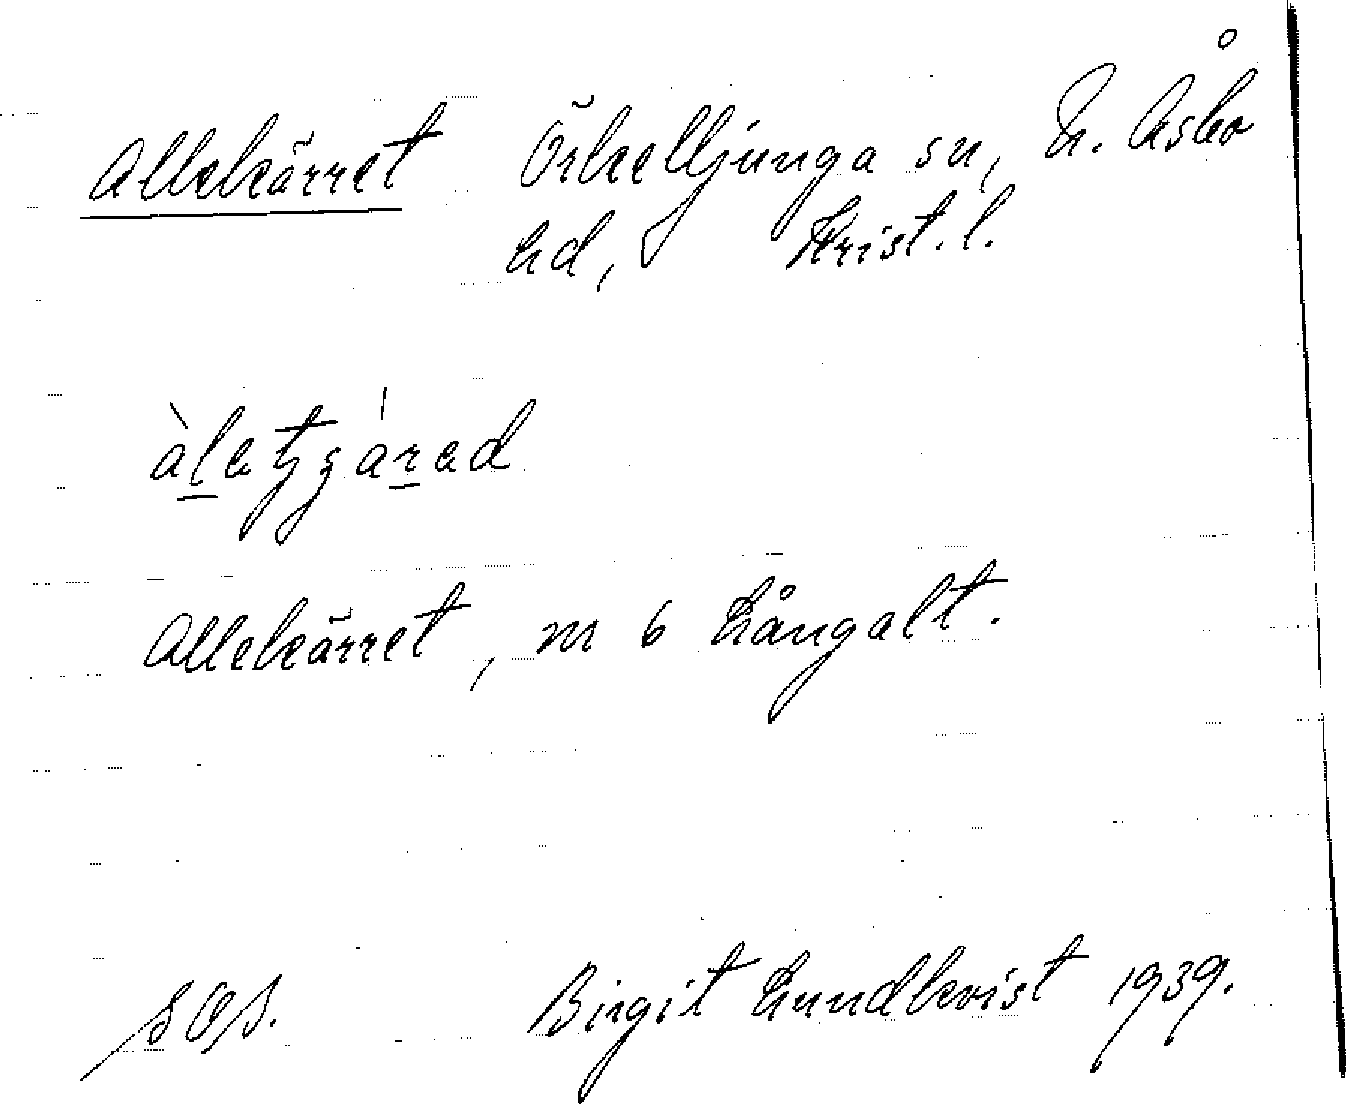 Allekärret Örkelljunga sn, N. Åsbo
hd, Krist. l.
Allekärret, m 6 Långalt.
SOS. Birgit Lundkvist 1939.